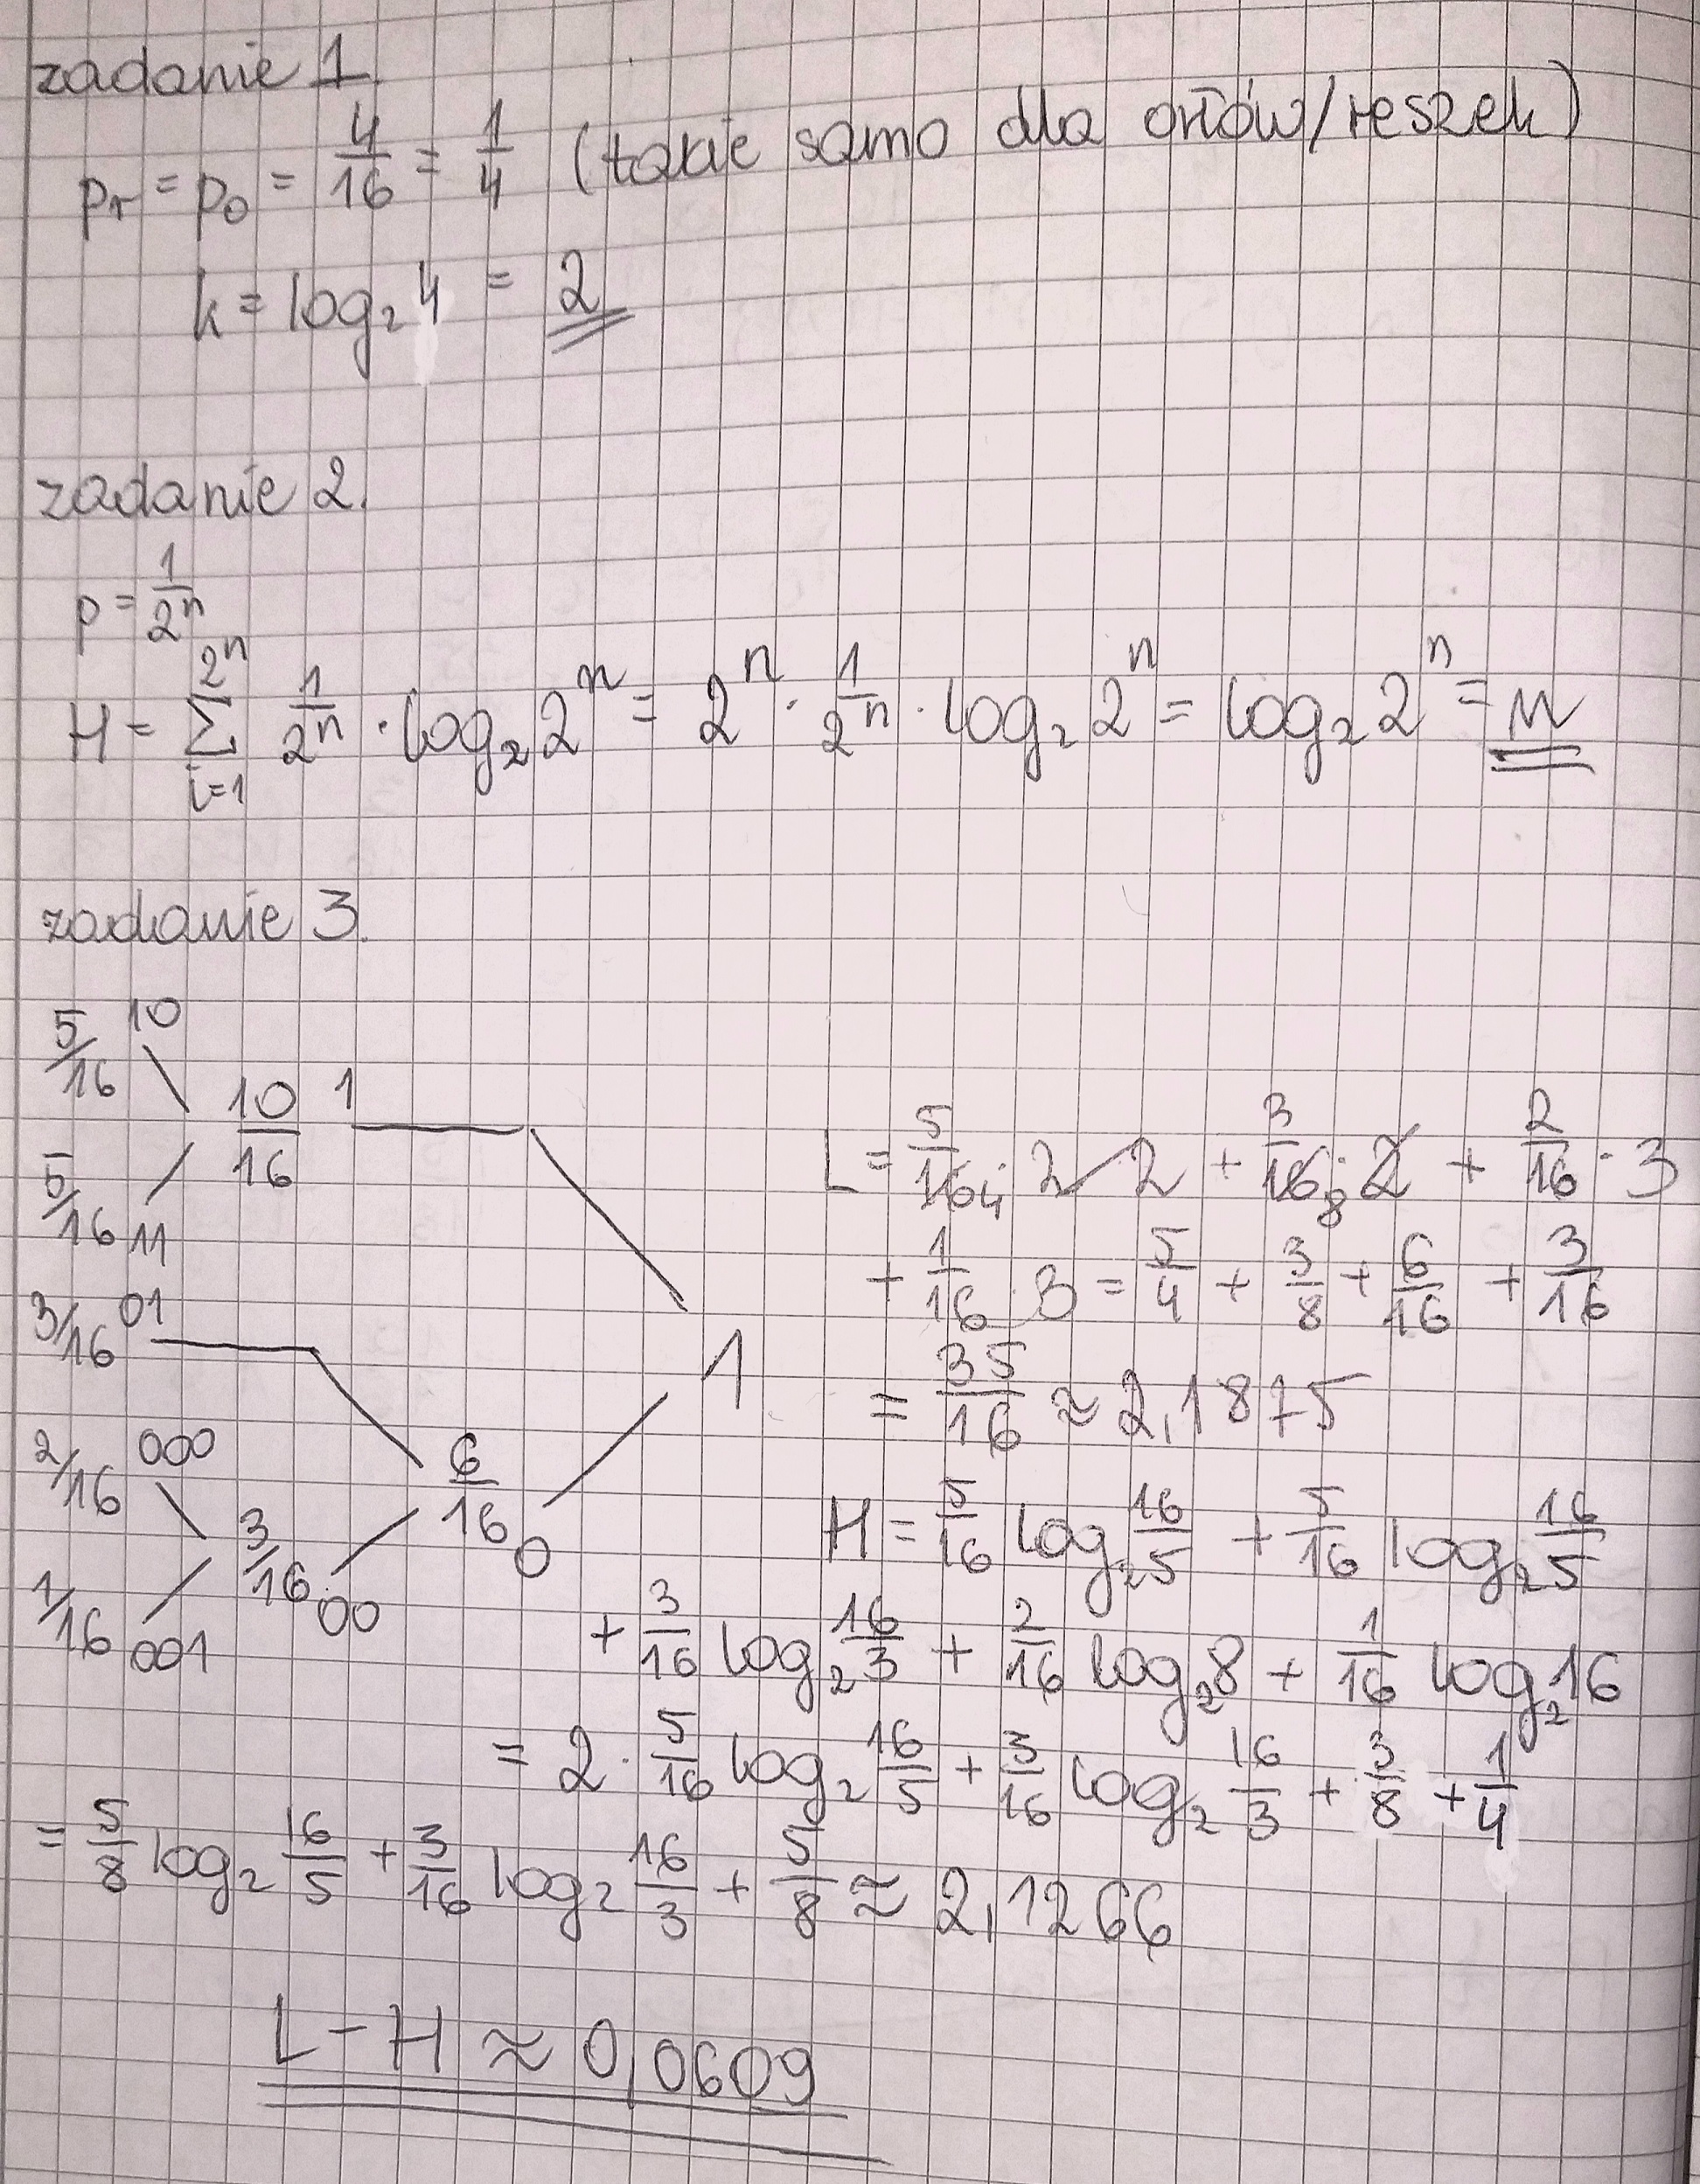 zadanie 1.
pr = po = 4/16 = 1/4 (takie samo dla orłów/reszek)
k = log₂ 4 = 2
zadanie 2.
p = 1/2ⁿ
H = Σ_{i=1}^{2ⁿ} 1/2ⁿ · log₂ 2ⁿ = 2ⁿ · 1/2ⁿ · log₂ 2ⁿ = log₂ 2ⁿ = n
zadanie 3.
5/16 10
10/16 1
5/16 11
3/16 01
1
2/16 000
6/16 0
3/16 00
1/16 001
L = 5/16₄ · 2 · 2 + 3/16₈ · 2 + 2/16 · 3
+ 1/16 · 3 = 5/4 + 3/8 + 6/16 + 3/16
= 35/16 ≈ 2,1875
H = 5/16 log₂ 16/5 + 5/16 log₂ 16/5
+ 3/16 log₂ 16/3 + 2/16 log₂ 8 + 1/16 log₂ 16
= 2 · 5/16 log₂ 16/5 + 3/16 log₂ 16/3 + 3/8 + 1/4
= 5/8 log₂ 16/5 + 3/16 log₂ 16/3 + 5/8 ≈ 2,1266
L - H ≈ 0,0609